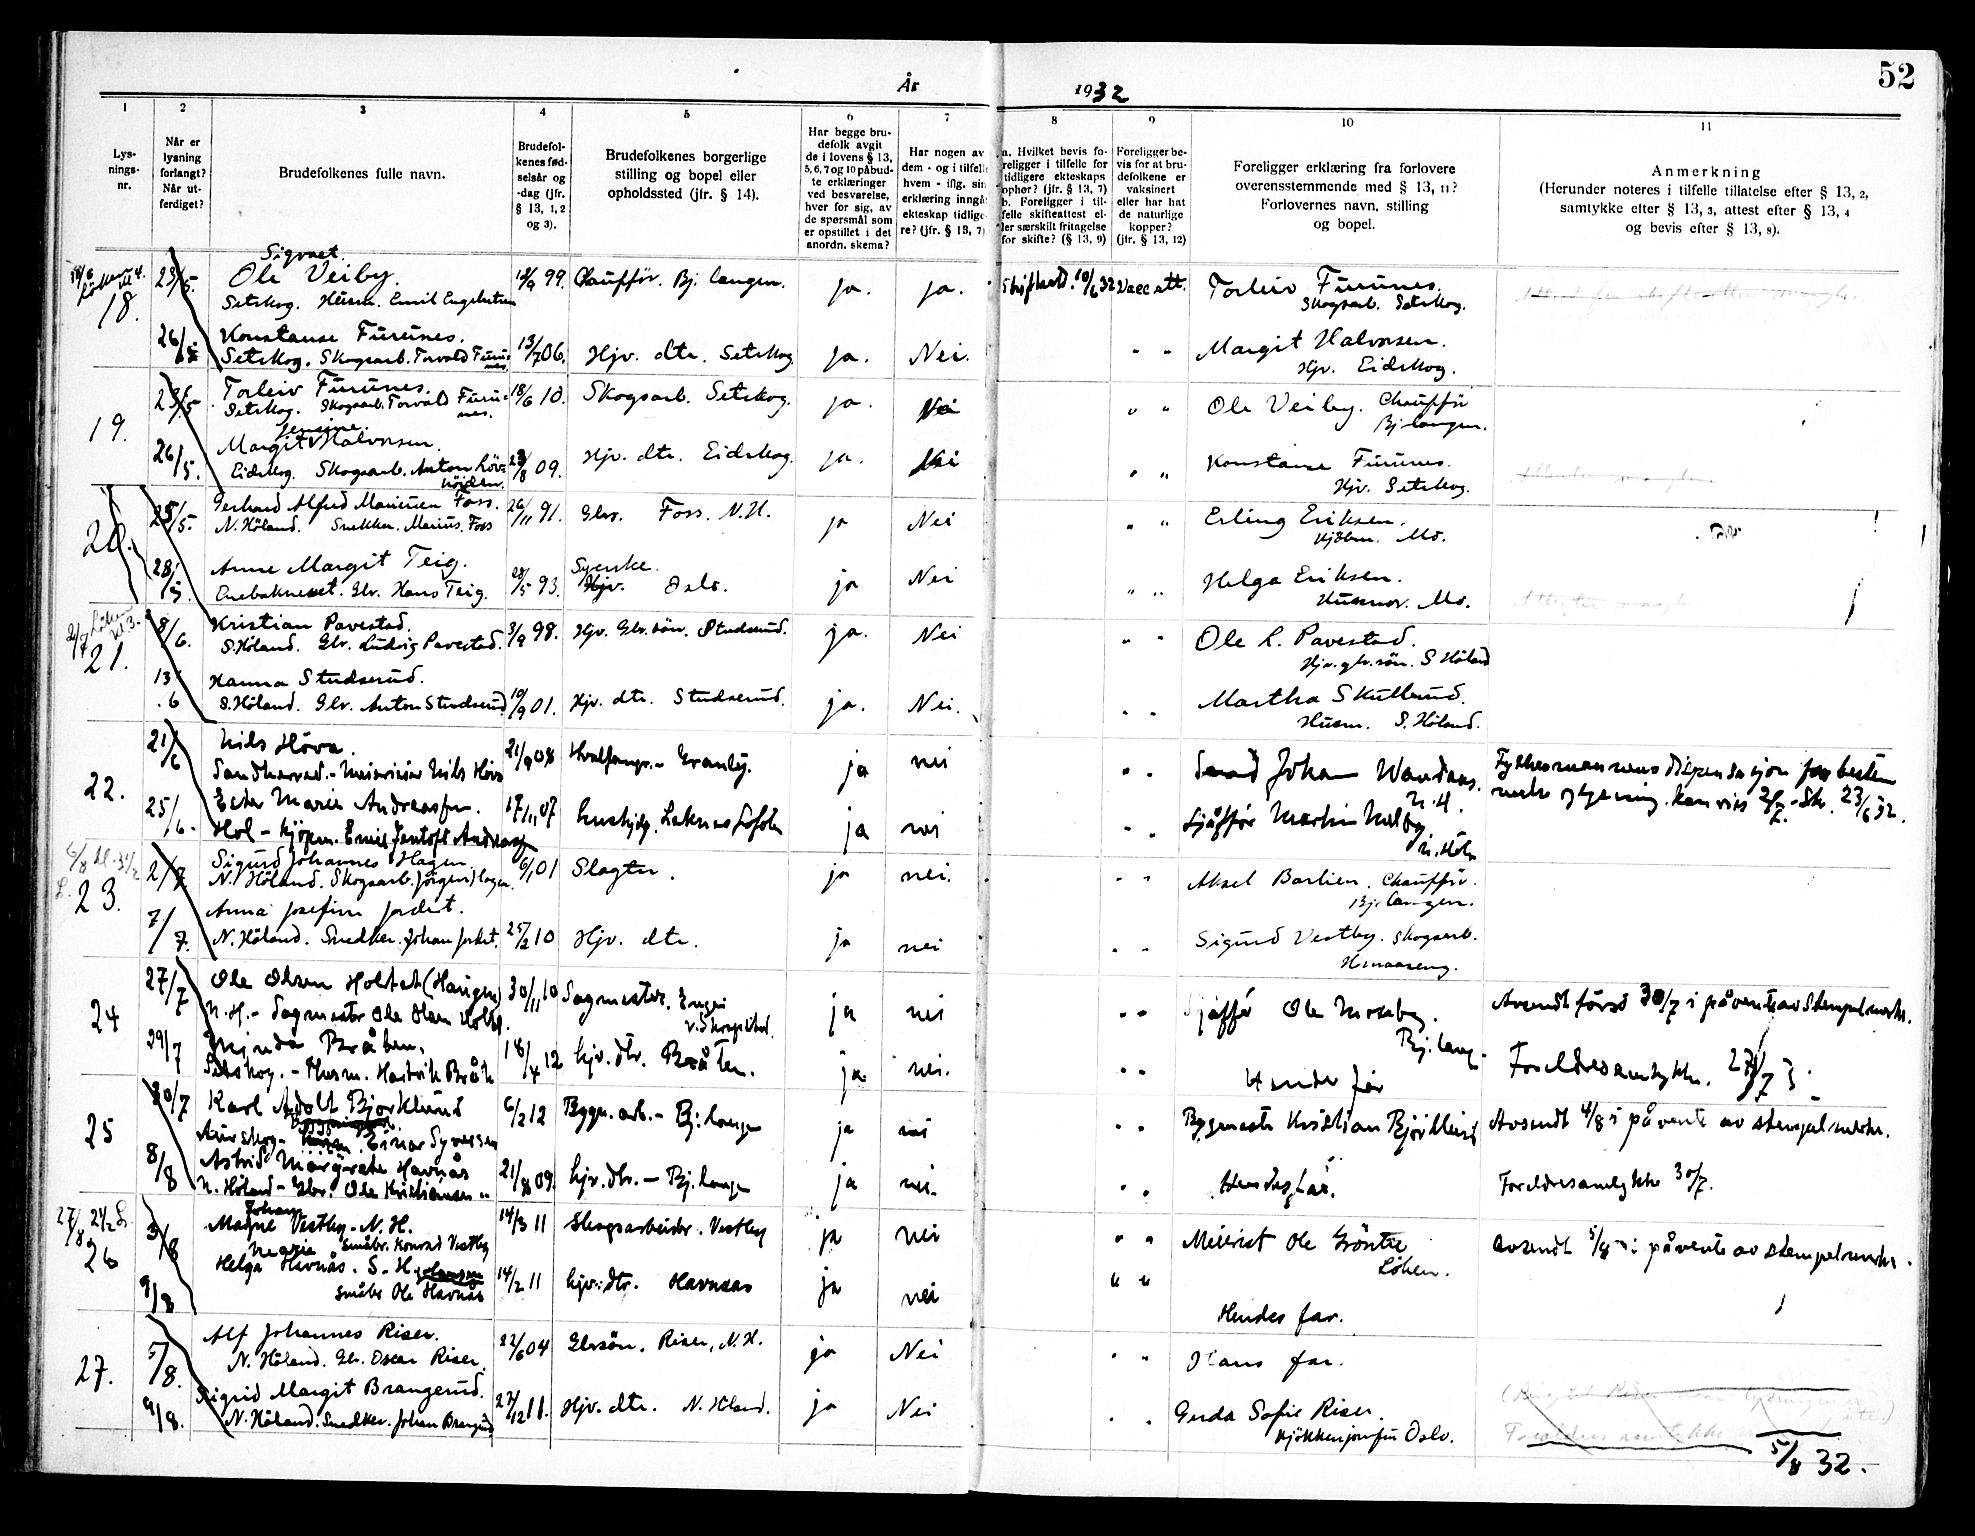 52
År 1932
1 2 3 4 5 6 7 8 9 10 11
Lysningsnr.
Når er lysning forlangt? Når utferdiget?
Brudefolkenes fulle navn.
Brudefolkenes fødselsår og -dag (jfr. § 13, 1, 2 og 3).
Brudefolkenes borgerlige stilling og bopel eller opholdssted (jfr. § 14).
Har begge brudefolk avgit de i lovens § 13, 5, 6, 7 og 10 påbudte erklæringer ved besvarelse, hver for sig, av de spørsmål som er opstillet i det anordn. skema?
Har nogen av dem - og i tilfelle hvem - iflg. sin erklæring inngå ekteskap tidligere? (jfr. § 13, 7)
a. Hvilket bevis foreligger i tilfelle for tidligere ekteskaps ophør? (jfr. § 13, 7) b. Foreligger i tilfelle skifteattest eller særskilt fritagelse for skifte? (§ 13, 9)
Foreligger bevis for at brudefolkene er vaksinert eller har hat de naturlige kopper? (jfr. § 13, 12)
Foreligger erklæring fra forlovere overensstemmende med § 13, 11? Forlovernes navn, stilling og bopel.
Anmerkning (Herunder noteres i tilfelle tillatelse efter § 13, 2, samtykke efter § 13, 3, attest efter § 13, 4 og bevis efter § 13, 8).
18. 23/5. Sigvart. Ole Veiby. 99. Chaufför. Bj. langen. ja. ja. 10/6 32 Vacc att. Torleiv Furunes.
Setskog. Husm. Emil Engebretsen Skogsarb. Setskog.
26/5 Konstanse Furunes. 13/7 06. Hjv. dtr. Setskog ja. Nei. " " Margit Halvorsen.
Setskog. Skogsarb. Torvald Furunes. Hjv. Eidskog.
19. 23/5 Torleiv Furunes. 18/6 10. Skogsarb. Setskog. ja. Nei " " Ole Veiby. Chaufför
Setskog. Skogsarb. Torvald Furunes. Bj langen.
26/5. Margit Halvorsen. 09. Hjv. dtr. Eidskog. ja. Nei " " Konstanse Furunes.
Eidskog. Skogsarb. Anton Hjv. Setskog.
20. 25/5. Gerhard Alfred Foss. 26/11 91. Gbr. Foss. N.H. ja Nei " " Erling Eriksen.
N. Höland. Snekker. Marius Foss Mo.
28/5 Anne Margit Teig. 28/5 93. Syerske. Hjv. Oslo. ja Nei " " Helga Eriksen.
Enebakneset. Gbr. Hans Teig. Husmor. Mo.
21. 8/6. Kristian Pavestad. 3/9 98. Hjv. Gbr. sön. Studsrud. ja. Nei " " Ole L. Pavestad.
S. Höland. Gbr. Ludvig Pavestad. Hjv. gbr. sön. S Höland
13/6 Hanna Studserud. 10/9 01. Hjv. dtr. Studserud. ja. Nei. " " Martha Skullerud.
S. Höland. Gbr. Anton Studserud. Husm. S. Höland.
22. 21/6 Nils Höva. 21/9 08 Hvalfanger - Granly. ja nei " " Johan
25/6. Ester Marie Andreassen. 17/11 07 ja nei " " Sjåfför Martin
23/6 32.
23. 2/7 Sigurd Johannes Hagen. 6/1 01 Slagter. ja nei. " " Aksel Barlien. Chaufför.
N. Höland. Skogsarb. Jörgen Hagen. Bj. langen.
7/7. Anna Josefine Jordet. 25/2 10 Hjv. dtr. ja nei " " Sigurd Vestby. Skogsarb.
N. Höland. Snedker. Johan Jordet.
24 27/7 Ole Olsen Holtet (Haugen) 30/11 10 Sagmester. ja nei " " Sjåfför Ole Moseby. Avsendt først 30/7 i påvente av Stempelmerke.
N. H. - Sagmester Ole Olsen Holtet. Bj. lang.
29/7 Bråten. 18/4 12 hjv. dtr. Bråten. ja nei. " " Hendes far Foreldresamtykke. 27/7
Setskog. - Husm.
25 30/7 Karl Adolt Bjorklund 6/2 12 Bygn. arb. - Bj. lange ja nei " " Bygmester Kristian Björklund Avsendt 4/8 i påvente av stempelmerke.
Aurskog - Einar Syversen
8/8 Astrid Margrete Havnås 21/8 09. hjv. dtr. - Bj. lange ja nei. " " Hendes far. Foreldresamtykke 30/7.
N. Höland - Gbr. Ole Kristiansen
26 3/8 Magne Johan Vestby - N. H. 14/3 11 Skogsarbeider. Vestby ja nei " " Meierist Ole Löken. Avsendt 5/8 i påvente av stempelmerke.
Småbr. Konrad Vestby
9/8 Helga Marie Havnås. S. H. 14/2 11 hjv. dtr. Havnaas ja nei " " Hendes far.
Småbr Ole Havnås
27. 5/8. Alf Johannes Riser. 22/6 04 Gbrsön. Riser, N. H. ja Nei " " Hans far.
N. Höland. Gbr. Oscar Riser.
9/8. Sigrid Margit Brangerud. 11. Hjv. dtr. N. Höland. ja Nei " " Gerda Sofie Riser.
N. Höland. Snedker. Johan Brangerud Oslo.
5/8 32.